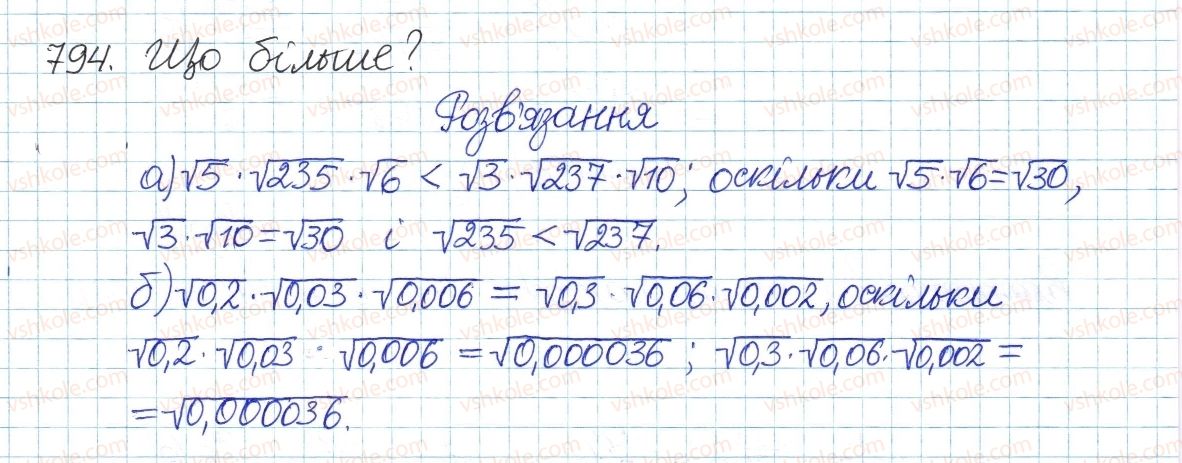 794. Що більше?
Розв'язання
а) √5 · √235 · √6 < √3 · √237 · √10; оскільки √5 · √6 = √30,
√3 · √10 = √30 і √235 < √237.
б) √0,2 · √0,03 · √0,006 = √0,3 · √0,06 · √0,002, оскільки
√0,2 · √0,03 · √0,006 = √0,000036; √0,3 · √0,06 · √0,002 =
= √0,000036.
vshkole.com